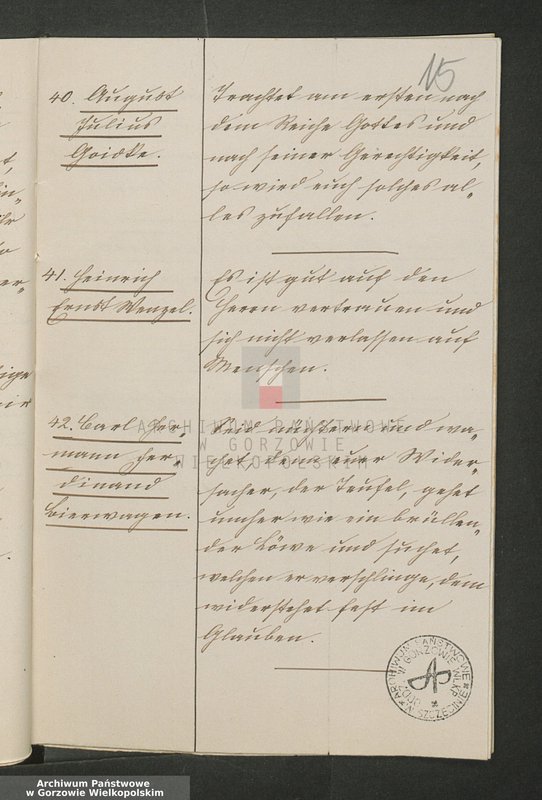 15
40. August
Julius
Goidke.
Trachtet am ersten nach
dem Reiche Gottes und
nach seiner Gerechtigkeit,
so wird euch solches al-
les zufallen.
41. Heinrich
Ernst Wenzel.
Es ist gut auf den
Herrn vertrauen und
sich nicht verlassen auf
Menschen.
42. Carl Her-
mann Fer-
dinand
Bierwagen.
Seid nüchtern und wa-
chet, denn euer Wider-
sacher, der Teufel, gehet
umher wie ein brüllen-
der Löwe und suchet,
welchen er verschlinge, dem
widerstehet fest im
Glauben.
ARCHIWUM PAŃSTWOWE
W GORZOWIE
WIELKOPOLSKIM
ARCHIWUM PAŃSTWOWE
W SZCZECINIE
W GORZOWIE WLKP.
Archiwum Państwowe
w Gorzowie Wielkopolskim